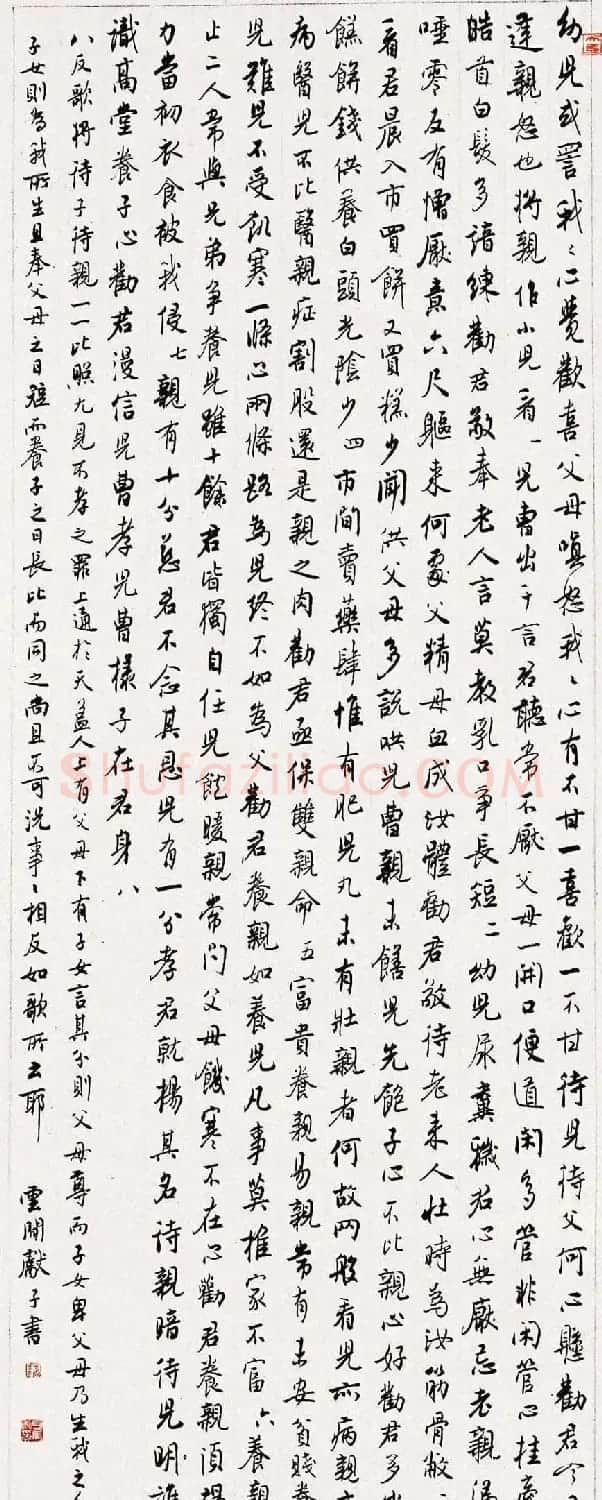 幼兒或詈我〻心覺歡喜父母嗔怒我〻心有不甘一喜歡一不甘待兒待父何心懸勸君今
違親怒也將親作小兒看一兒曹出千言君聽常不厭父母一開口便道閑多管非閑管心挂
皓首白髮多諳練勸君敬奉老人言莫教乳口爭長短二幼兒尿糞穢君心無厭忌老親涕
唾零反有憎厭意六尺軀來何處父精母血成汝體勸君敬待老來人壯時為汝筋骨敝
看君晨入市買餅又買糕少聞供父母多說供兒曹親未饍兒先飽子心不比親心好勸君多
糕餅錢供養白頭光陰少四市間賣藥肆惟有肥兒丸未有壯親者何故兩般看兒亦病親
病醫兒不比醫親症割股還是親之肉勸君亟保雙親命五富貴養親易親常有未安貧賤養
兒難兒不受飢寒一條心兩條路為兒終不如為父勸君養親如養兒凡事莫推家不富六養親
止二人常與兄弟爭養兒雖十餘君皆獨自任兒飽暖親常問父母饑寒不在心勸君養親須竭
力當初衣食被我侵七親有十分慈君不念其恩兒有一分孝君就揚其名待親暗待兒明誰
識高堂養子心勸君漫信兒曹孝兒曹樣子在君身八
八反歌將待子待親一一比照尤見不孝之罪上通於天蓋人上有父母下有子女言其分則父母尊而子女卑父母乃生我之
子女則為我所生且奉父母之日短而養子之日長比而同之尚且不可況事〻相反如歌所云耶
雲間獻子書
Shufaziliao.COM